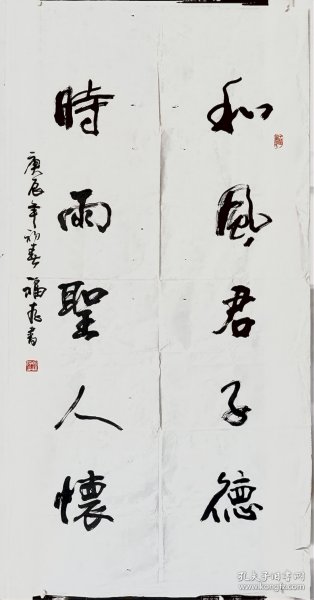 和風君子德
時雨聖人懷
庚辰年初春 福春書
孔夫子旧书网